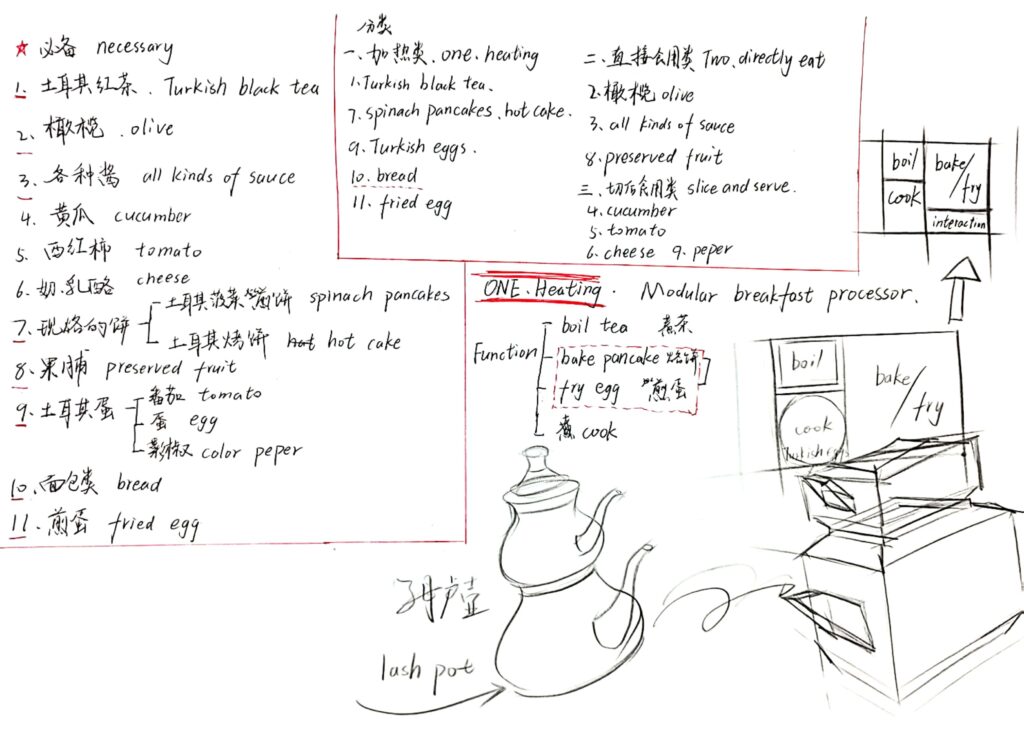 ★ 必备 necessary
1. 土耳其红茶. Turkish black tea
2. 橄榄. olive
3. 各种酱 all kinds of sauce
4. 黄瓜 cucumber
5. 西红柿 tomato
6. 奶乳酪 cheese
7. 现烙的饼
土耳其菠菜煎饼 spinach pancakes
土耳其烤饼 hot cake
8. 果脯 preserved fruit
9. 土耳其蛋
番茄 tomato
蛋 egg
彩椒 color peper
10. 面包类 bread
11. 煎蛋 fried egg
分类
一、加热类. one. heating
1. Turkish black tea.
7. spinach pancakes、hot cake.
9. Turkish eggs.
10. bread
11. fried egg
二、直接食用类 Two、directly eat
2. 橄榄 olive
3. all kinds of sauce
8. preserved fruit
三、切后食用类 slice and serve.
4. cucumber
5. tomato
6. cheese 9. peper
ONE. Heating. Modular breakfast processor.
Function
boil tea 煮茶
bake pancake 烙饼
fry egg 煎蛋
煮 cook
boil
cook
bake/fry
interaction
boil
cook
Turkish eggs
bake/fry
子母壶
lash pot